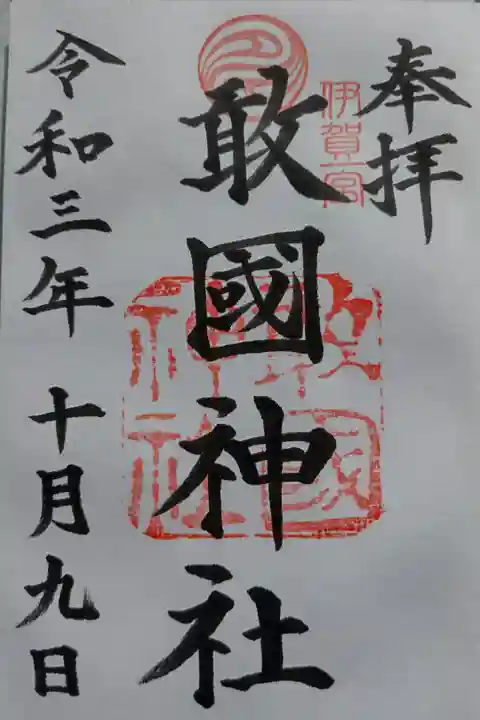 奉拝
伊賀一宮
敢國神社
令和三年 十月九日